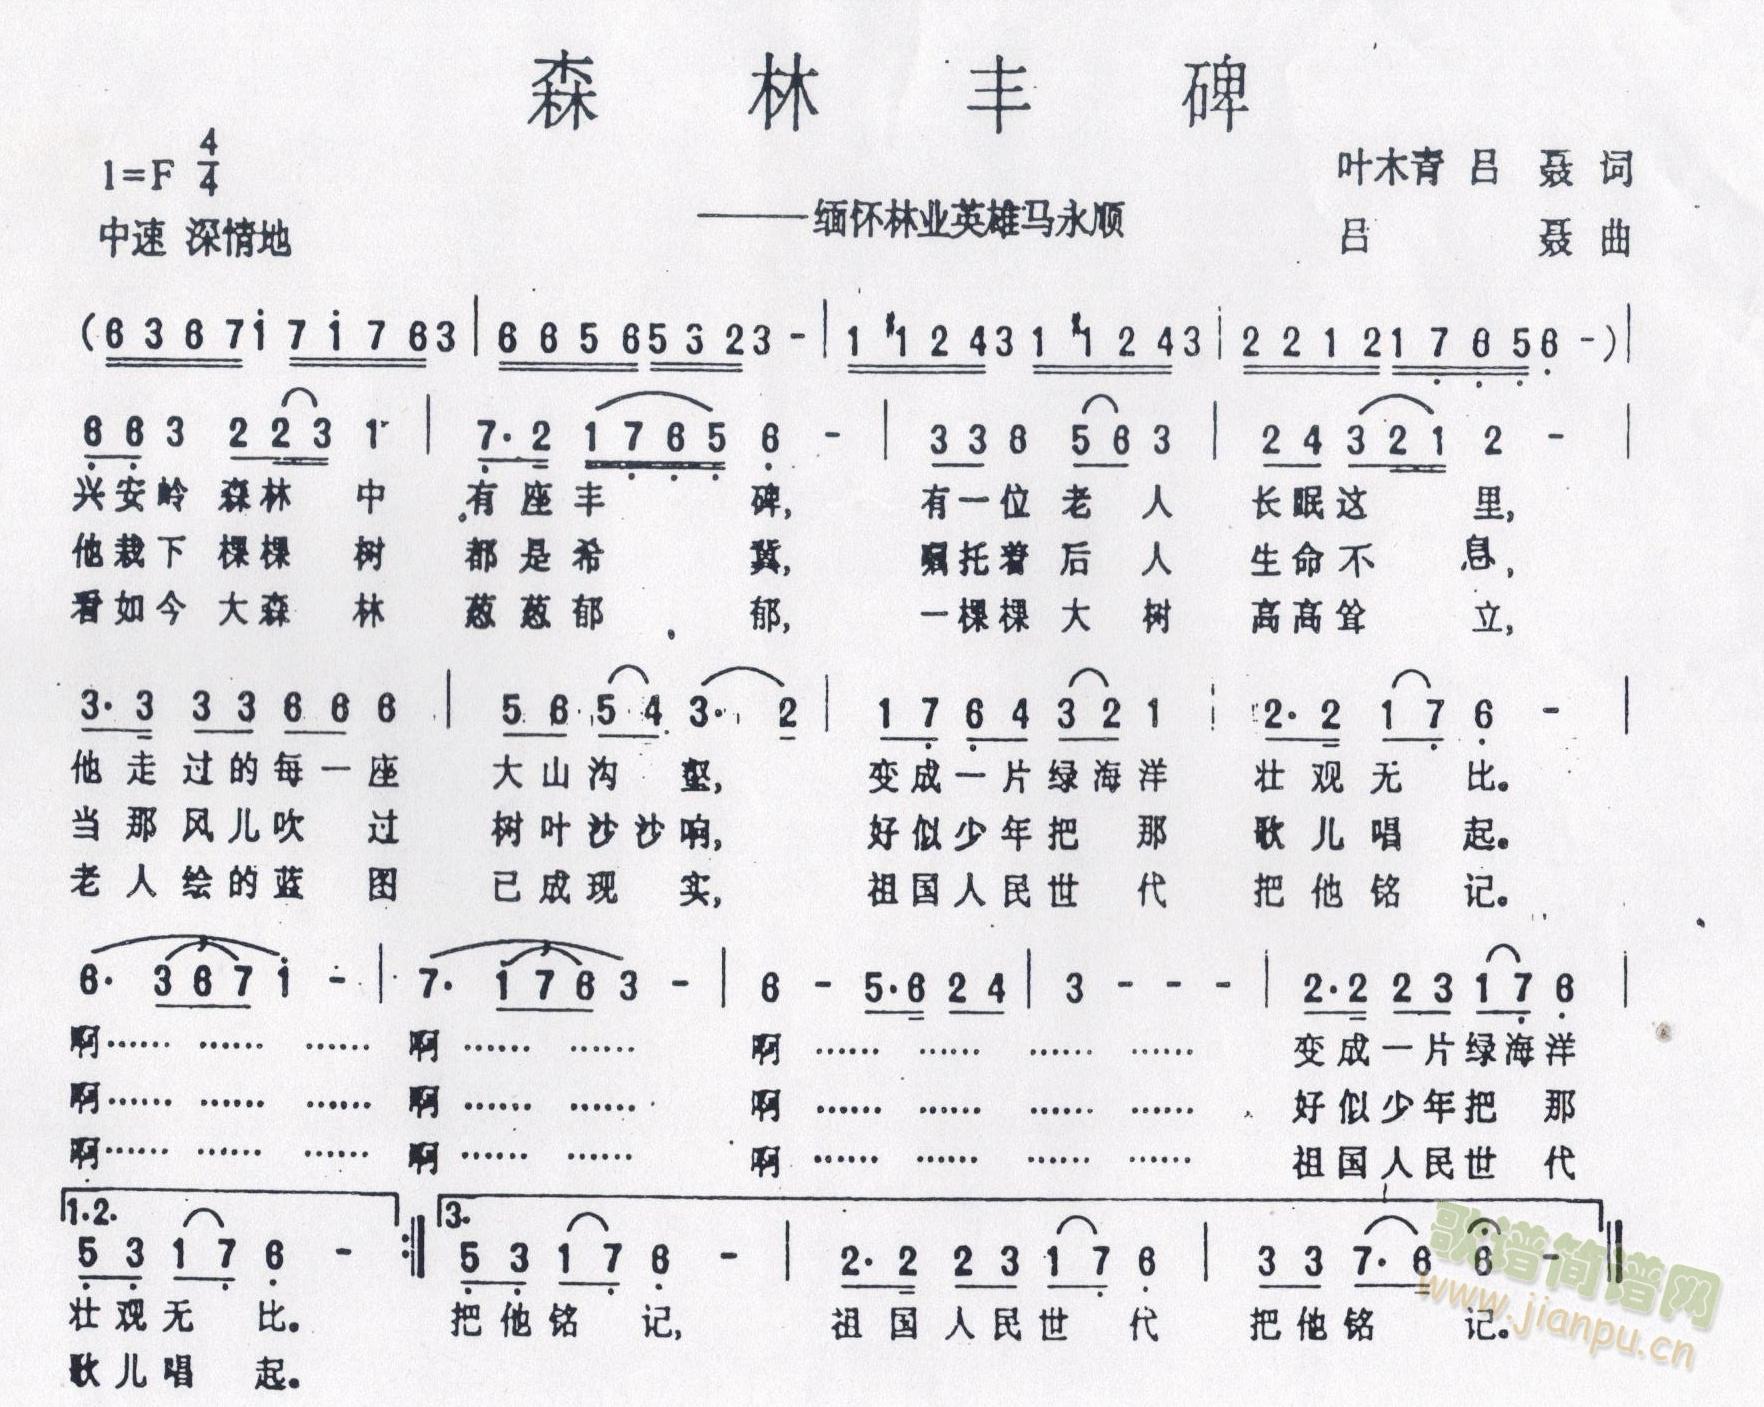 森林丰碑
1=F 4/4
叶木青 吕聂词
——缅怀林业英雄马永顺
中速 深情地
吕聂曲
(6 3 6 7 i 7 i 7 6 3 | 6 6 5 6 5 3 2 3 - | 1 #1 2 4 3 1 #1 2 4 3 | 2 2 1 2 1 7 6 5 6 - ) |
6 6 3 2 2 3 1 | 7· 2 1 7 6 5 6 - | 3 3 6 5 6 3 | 2 4 3 2 1 2 - |
兴安岭 森林 中 有座丰 碑, 有一位老 人 长眠这 里,
他栽下 棵棵 树 都是希 冀, 嘱托着后 人 生命不 息,
看如今 大森 林 葱葱郁 郁, 一棵棵大 树 高高耸 立,
3· 3 3 3 6 6 6 | 5 6 5 4 3· 2 | 1 7 6 4 3 2 1 | 2· 2 1 7 6 - |
他走过的每一座 大山沟 壑, 变成一片绿海洋 壮观无 比。
当那风儿吹 过 树叶沙沙响, 好似少年把 那 歌儿唱 起。
老人绘的蓝 图 已成现 实, 祖国人民世 代 把他铭 记。
6· 3 6 7 i - | 7· 1 7 6 3 - | 6 - 5· 6 2 4 | 3 - - - | 2· 2 2 3 1 7 6 |
啊…… …… …… 啊…… …… 啊…… …… …… …… 变成一片绿海洋
啊…… …… …… 啊…… …… 啊…… …… …… …… 好似少年把 那
啊…… …… …… 啊…… …… 啊…… …… …… …… 祖国人民世 代
1.2. 3.
5 3 1 7 6 - :‖ 5 3 1 7 6 - | 2· 2 2 3 1 7 6 | 3 3 7· 6 6 - ‖
壮观无 比。 把他铭 记, 祖国人民世 代 把他铭 记。
歌儿唱 起。
歌谱简谱网
www.jianpu.cn